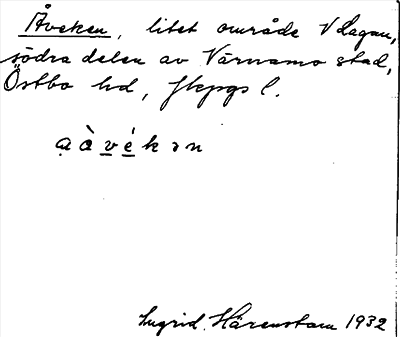 Åveken, litet område V Lagan,
södra delen av Värnamo stad,
Östbo hd, Jkpgs l.
a̤ à v é k ə n
Ingrid Härenstam 1932